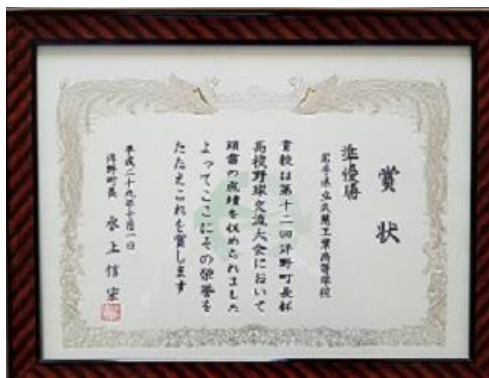 賞状
準優勝
岩手県立久慈工業高等学校
貴校は第十二回洋野町長杯
高校野球交流大会において
頭書の成績を収められました
よってここにその栄誉を
たたえこれを賞します
平成二十九年十月一日
洋野町長 水上信宏